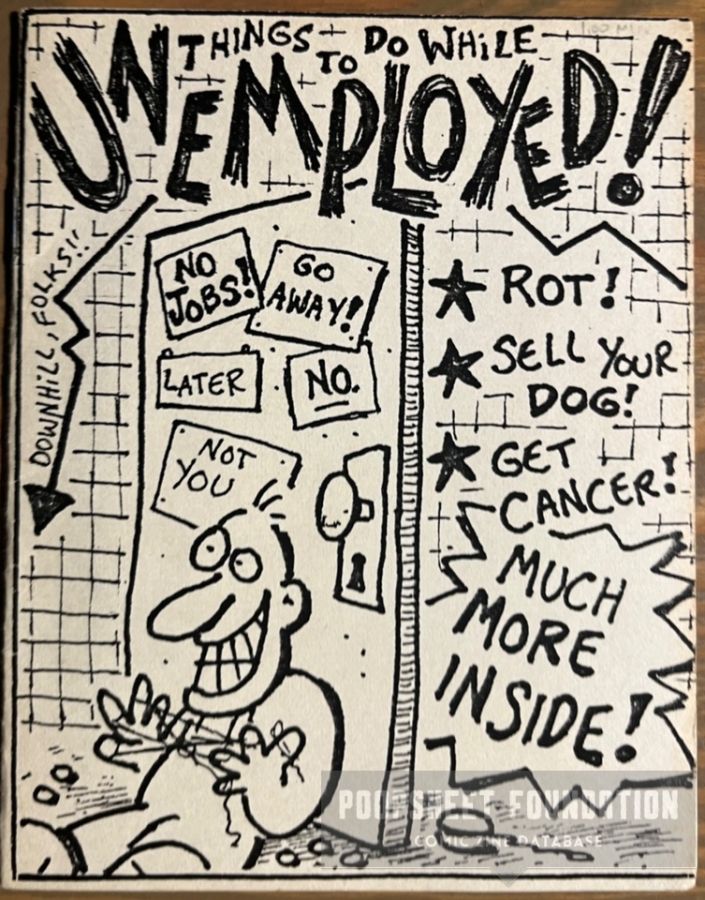 THINGS TO DO WHILE
UNEMPLOYED!
DOWNHILL, FOLKS!!
NO
JOBS!
GO
AWAY!
LATER
NO.
NOT
YOU
★ ROT!
★ SELL YOUR
DOG!
★ GET
CANCER!
MUCH
MORE
INSIDE!
POOPSHEET FOUNDATION
COMIC ZINE DATABASE